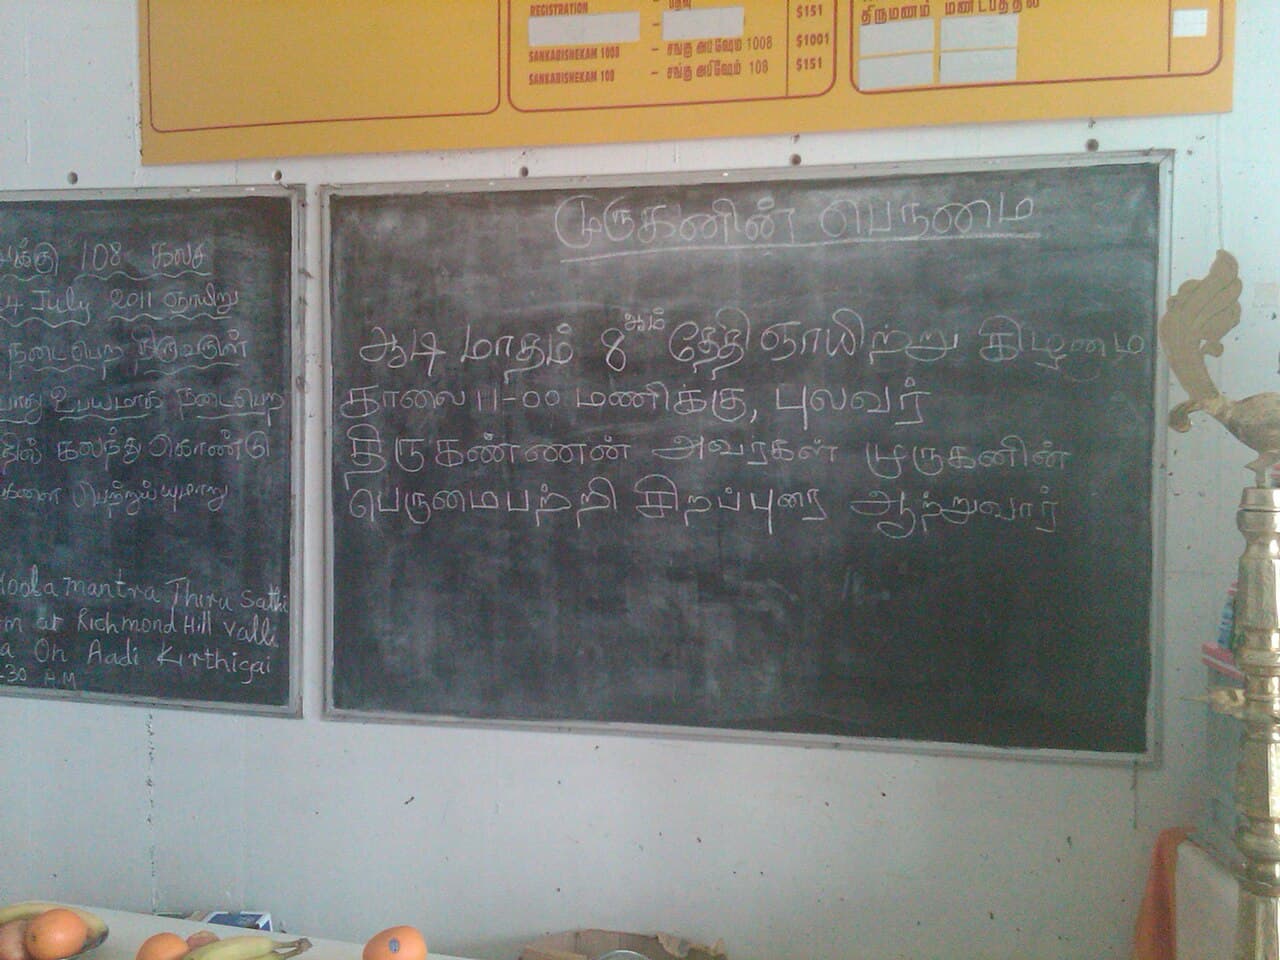 REGISTRATION $151
SANKABISHEKAM 1008 – சங்கு அபிஷேகம் 1008 $1001
SANKABISHEKAM 108 – சங்கு அபிஷேகம் 108 $151
திருமணம்
108 கலச
July 2011 ஞாயிறு
நடைபெற திருவருள்
உபயமாக நடைபெற
கலந்து கொண்டு
mantra Thiru Sathi
at Richmond Hill Valli
On Aadi Kirthigai
30 A.M
முருகனின் பெருமை
ஆடி மாதம் 8ஆம் தேதி ஞாயிற்று கிழமை
காலை 11-00 மணிக்கு, புலவர்
திருகண்ணன் அவர்கள் முருகனின்
பெருமைபற்றி சிறப்புரை ஆற்றுவார்